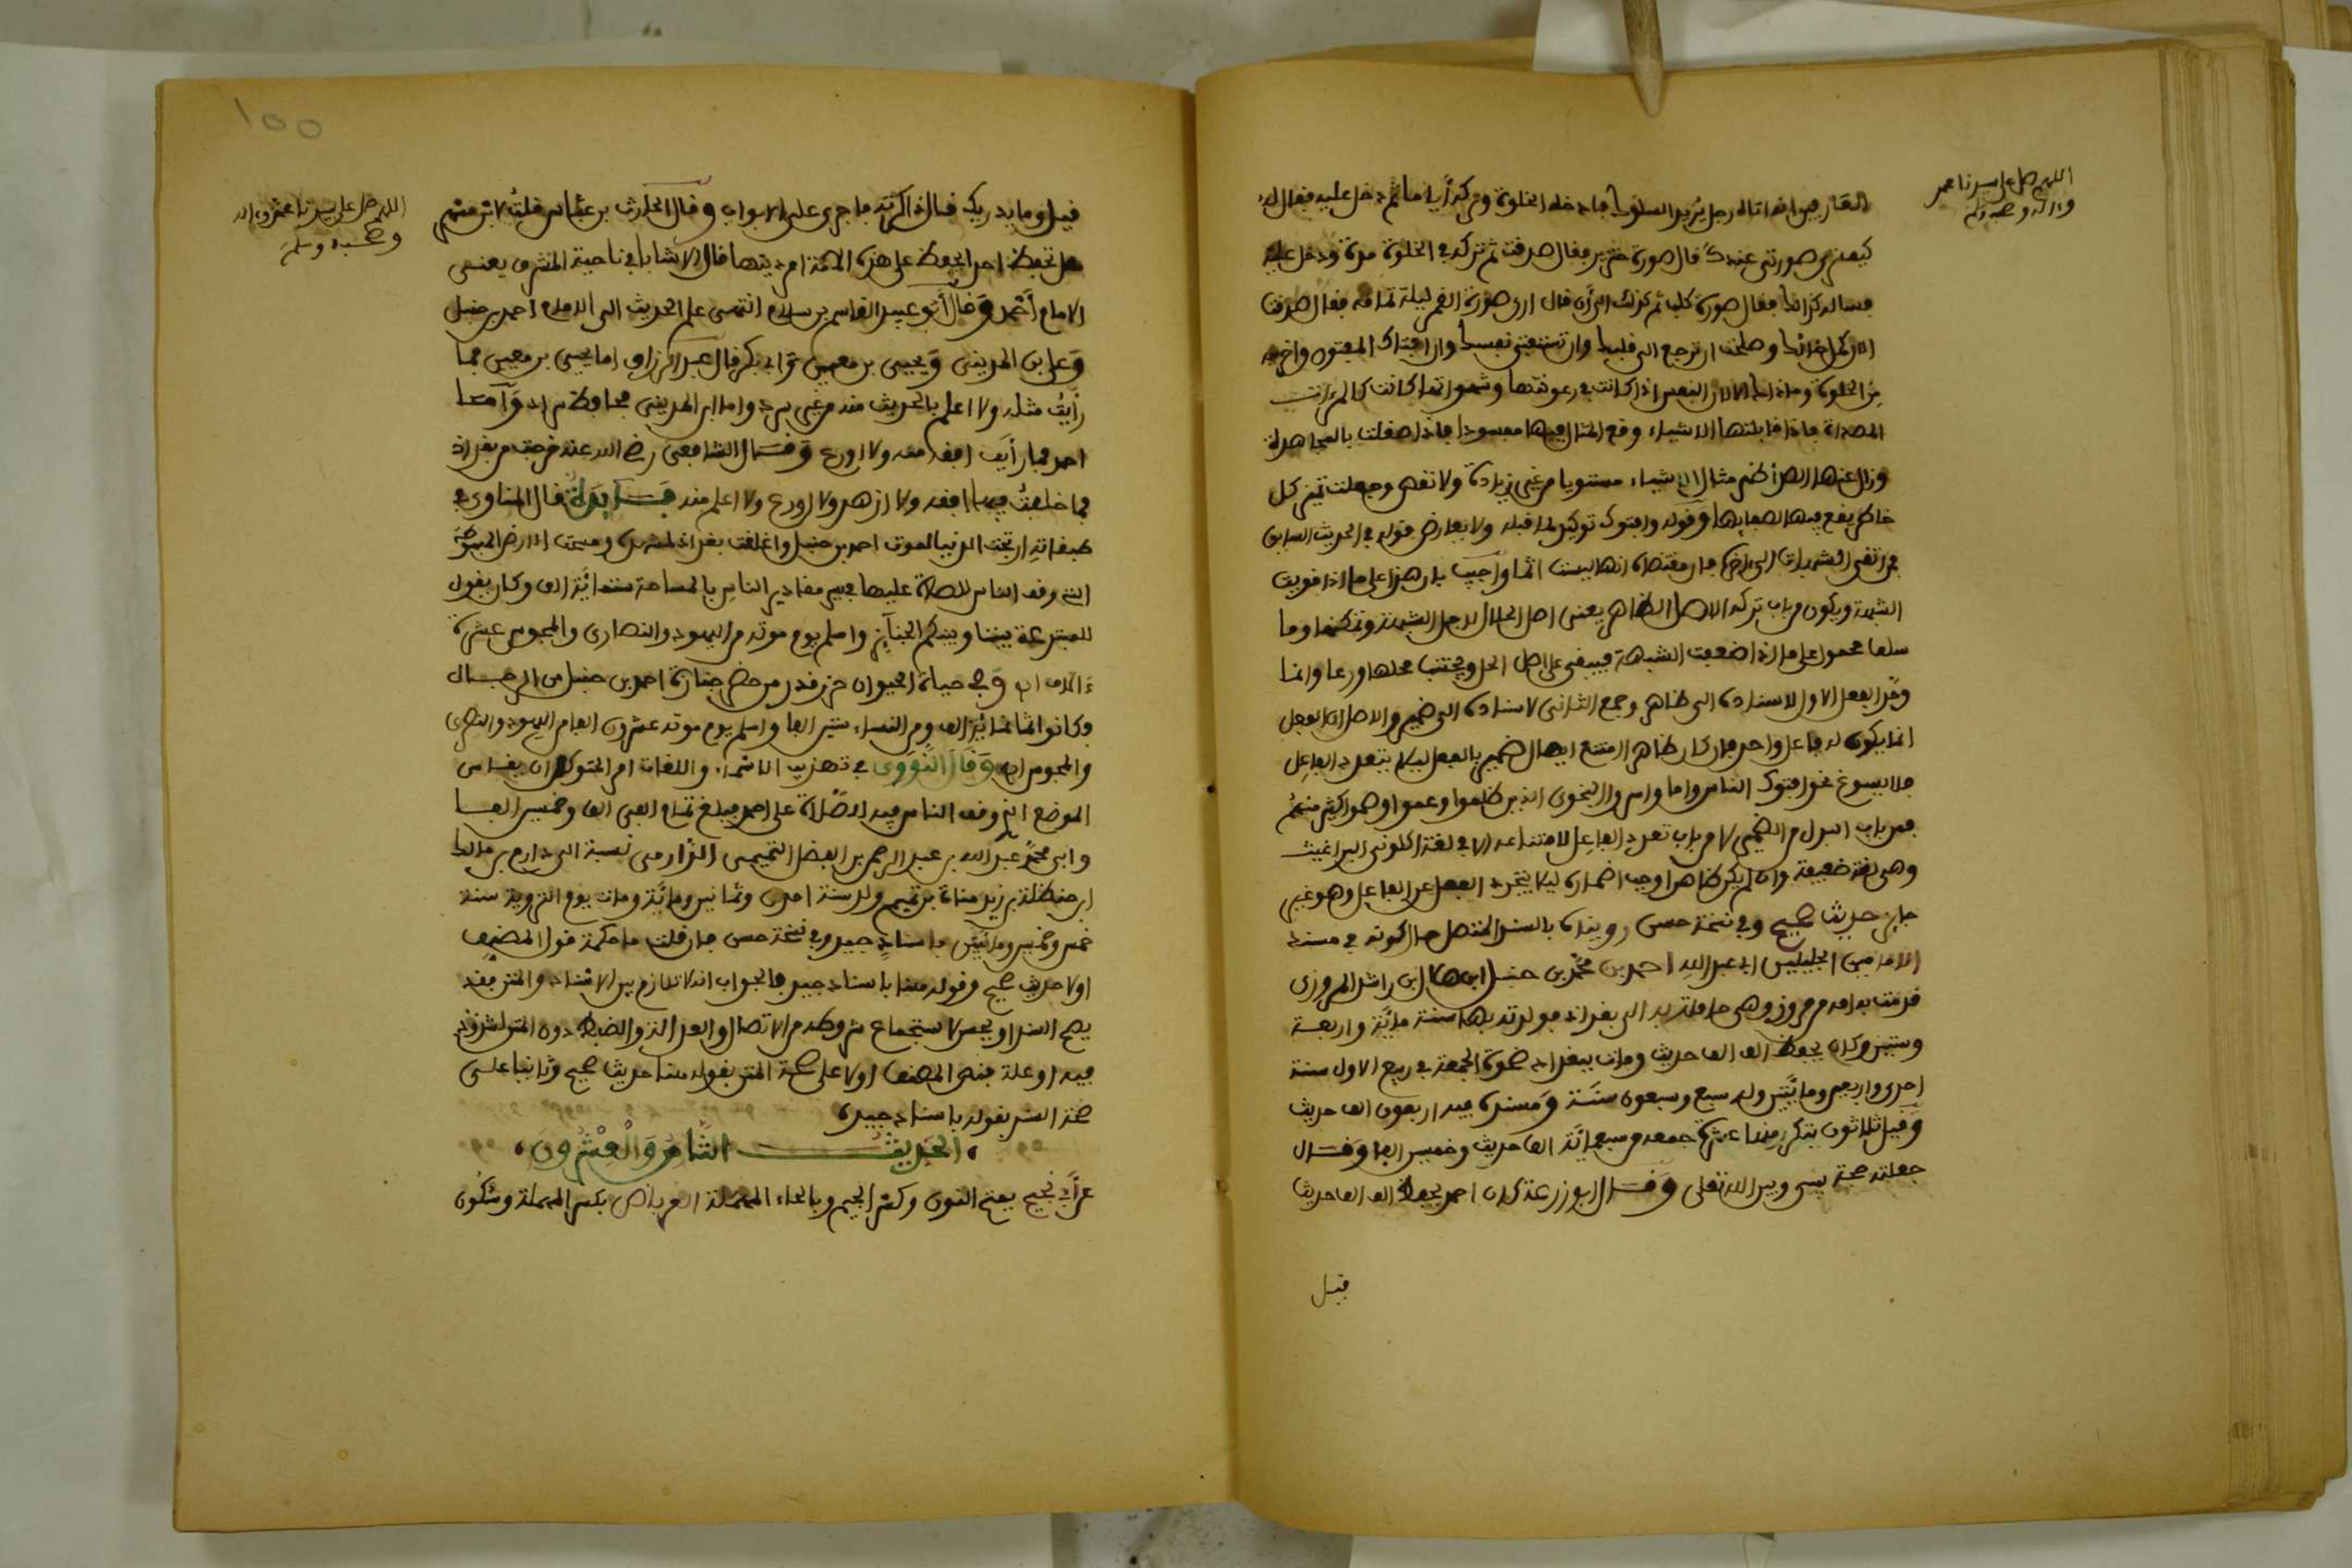 اللهم صل على سيدنا محمد
وءاله وصحبه وسلم
العارفين انه اتاه رجل يريد السلوك فادخله الخلوة وتركه أياما ثم دخل عليه فقال له
كيف ترى صورتي عندك قال صورة خنزير فقال صدقت ثم تركه في الخلوة مدة ودخل عليه
فساله كذلك فقال صورة كلب ثم كذلك الى أن قال ارى صورة القمر ليلة تمامه فقال صدقت
الان كمل حالك وصلحت ان ترجع الى قلبك وان تستفتي نفسك وان افتاك المفتون واخرجه
من الخلوة وما ذاك الا لان النفس اذا كانت في رعونتها وشهواتها كانت كالمرءات
المصداة فاذا قابلتها الاشياء وقع المثال فيها مفسودا فاذا صقلت بالمجاهدة
وزال عنها الصدأ ظهر مثال الاشياء مستويا من غير زيادة ولا نقص وجعلت تميز كل
خاطر يقع فيها لصفائها وقوله وافتوك توكيد لما قبله ولا يعارض قوله في الحديث السابق
فمن اتقى الشبهات الى ءاخره فان مقتضاه انها ليست اثما واجيب بان هذا على ما اذا قويت
الشبهة ويكون من باب ترك الاصل الظاهر يعني اصل الحلال لاجل الشبهة وتمكنها وما
سلف محمول على ما اذا ضعفت الشبهة فيبقى على اصل الحل ويجتنب محلها ورعا وانما
وحد الفعل الاول لاسناده الى ظاهر وجمع الثاني لاسناده الى ضمير والاصل ان الفعل
انما يكون له فاعل واحد فان كان ظاهرا امتنع ايصال ضمير بالفعل ليلا يتعدد الفاعل
فلا يسوغ نحو افتوك الناس واما واسروا النجوى الذين ظلموا وعموا وصموا كثير منهم
فمن باب البدل من الضمير لا من باب تعدد الفاعل لامتناعه الا في لغة اكلوني البراغيث
وهي لغة ضعيفة وان لم يكن ظاهرا وجب اضماره ليلا يتجرد الفعل عن الفاعل وهو غير
جايز حديث صحيح وفي نسخة حسن رويناه بالسند المتصل حال كونه في مسند
الامامين الجليلين ابي عبد الله احمد بن محمد بن حنبل ابن هلال بن راشد المروزي
قدمت به امه من مرو وهي حاملة به الى بغداد فولدته بها سنة مائة واربعة
وستين وكان يحفظ الف الف حديث ومات ببغداد ضحوة الجمعة في ربيع الاول سنة
احدى واربعين ومائتين وله سبع وسبعون سنة ومسنده فيه اربعون الف حديث
وقيل ثلاثون تكرر منها عشرة جمعه من سبعمائة الف حديث وخمسين الفا وقال
جعلته حجة بيني وبين الله تعلى وقال ابو زرعة كان احمد يحفظ الف الف حديث
قيل
100
اللهم صل على سيدنا محمد وءاله
وصحبه وسلم
قيل وما يدريك قال ذاكرته فاجرى على الابواب وقال الحارث بن عباس قلت لابي مسهر
هل تحفظ احدا يحفظ على هذه الامة امر دينها قال لا الا شابا في ناحية المشرق يعني
الامام أحمد وقال أبو عبيد القاسم بن سلام انتهى علم الحديث الى الامام احمد بن حنبل
وعلي ابن المديني ويحيى بن معين وابي بكر قال عبد الرزاق اما يحيى بن معين فما
رأيت مثله ولا اعلم بالحديث منه من غير سرد واما ابن المديني فحافظ سراد وأما
احمد فما رأيت افقه منه ولا اورع وقال الشافعي رضي الله عنه خرجت من بغداد
فما خلفت بها افقه ولا ازهد ولا اورع ولا اعلم منه فايدة قال المناوي في
طبقاته ارتجت الدنيا لموت احمد بن حنبل واغلقت بغداد لمشهده ومسحت الارض المبسوطة
التي وقف الناس للصلاة عليها فحصر مقادير الناس بالمساحة ستمائة الف وكان يقول
للمبتدعة بيننا وبينكم الجنائز واسلم يوم موته من اليهود والنصارى والمجوس عشرة
ءالاف اه وفي حياة الحيوان حزر قدر من حضر جنازة احمد بن حنبل من الرجال
وكانوا ثمانمائة الف ومن النساء ستين الفا واسلم يوم موته عشرون الفا من اليهود والنصرى
والمجوس اه وقال النووي في تهذيب الاسماء واللغات امر المتوكل ان يقاس
الموضع الذي وقف الناس فيه للصلاة على احمد فبلغ مقام الفي الف وخمسين الفا
وابي محمد عبد الله بن عبد الرحمن بن الفضل التميمي الدارمي نسبة الى دارم بن مالك
ابن حنظلة بن زيد مناة بن تميم ولد سنة احدى وثمانين ومائة ومات يوم التروية سنة
خمس وخمسين ومائتين باسناد جيد وفي نسخة حسن فان قلت ما حكمة قول المصنف
اولا حديث صحيح وقوله هنا باسناد جيد فالجواب انه لا تلازم بين الاسناد والمتن فقد
يصح السند او يحسن لاستجماع شروطه من الاتصال والعدالة والضبط دون المتن لشذوذ
فيه او علة فنص المصنف اولا على صحة المتن بقوله هذا حديث صحيح وثانيا على
صحة السند بقوله باسناد جيد
الحديث الثامن والعشرون
عن أبي نجيح بفتح النون وكسر الجيم وبالحاء المهملة العرباض بكسر المهملة وسكون